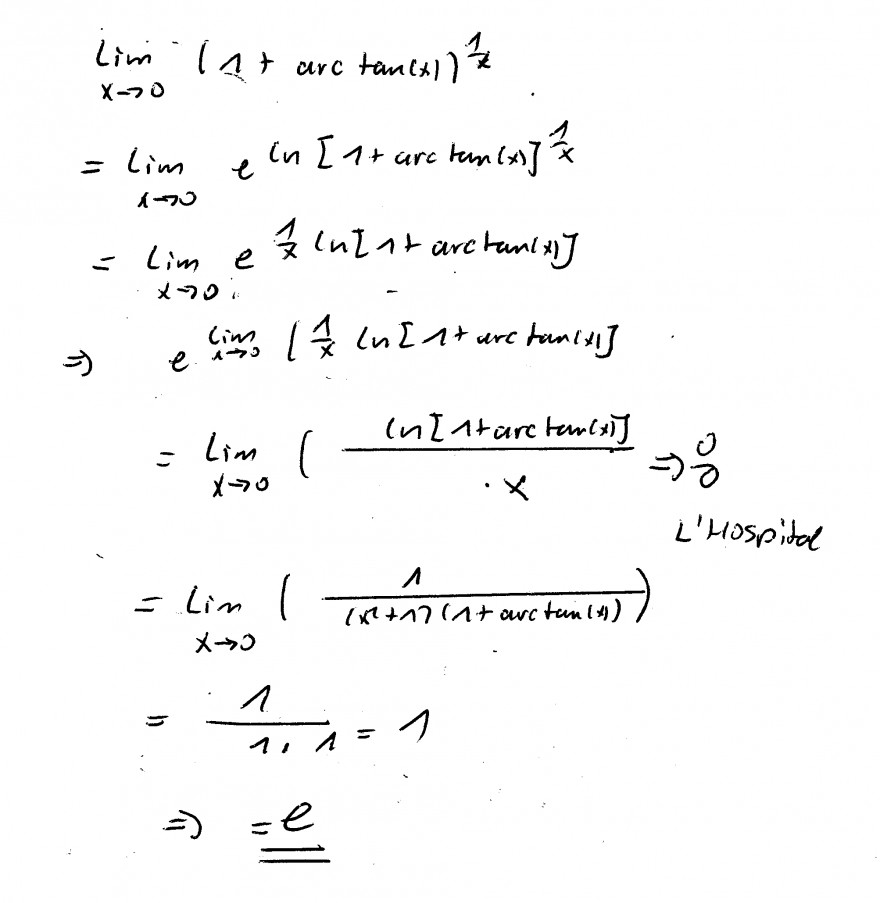 Lim (1 + arc tan(x))^1/x
x→0
= Lim e^ln [1 + arc tan(x)]^1/x
x→0
= Lim e^1/x ln[1 + arc tan(x)]
x→0
⇒ e^Lim x→0 [1/x ln[1 + arc tan(x)]
= Lim ( ln[1 + arc tan(x)] / x ⇒ 0/0
x→0
L'Hospital
= Lim ( 1 / (x²+1)(1 + arc tan(x)) )
x→0
= 1 / 1 · 1 = 1
⇒ = e